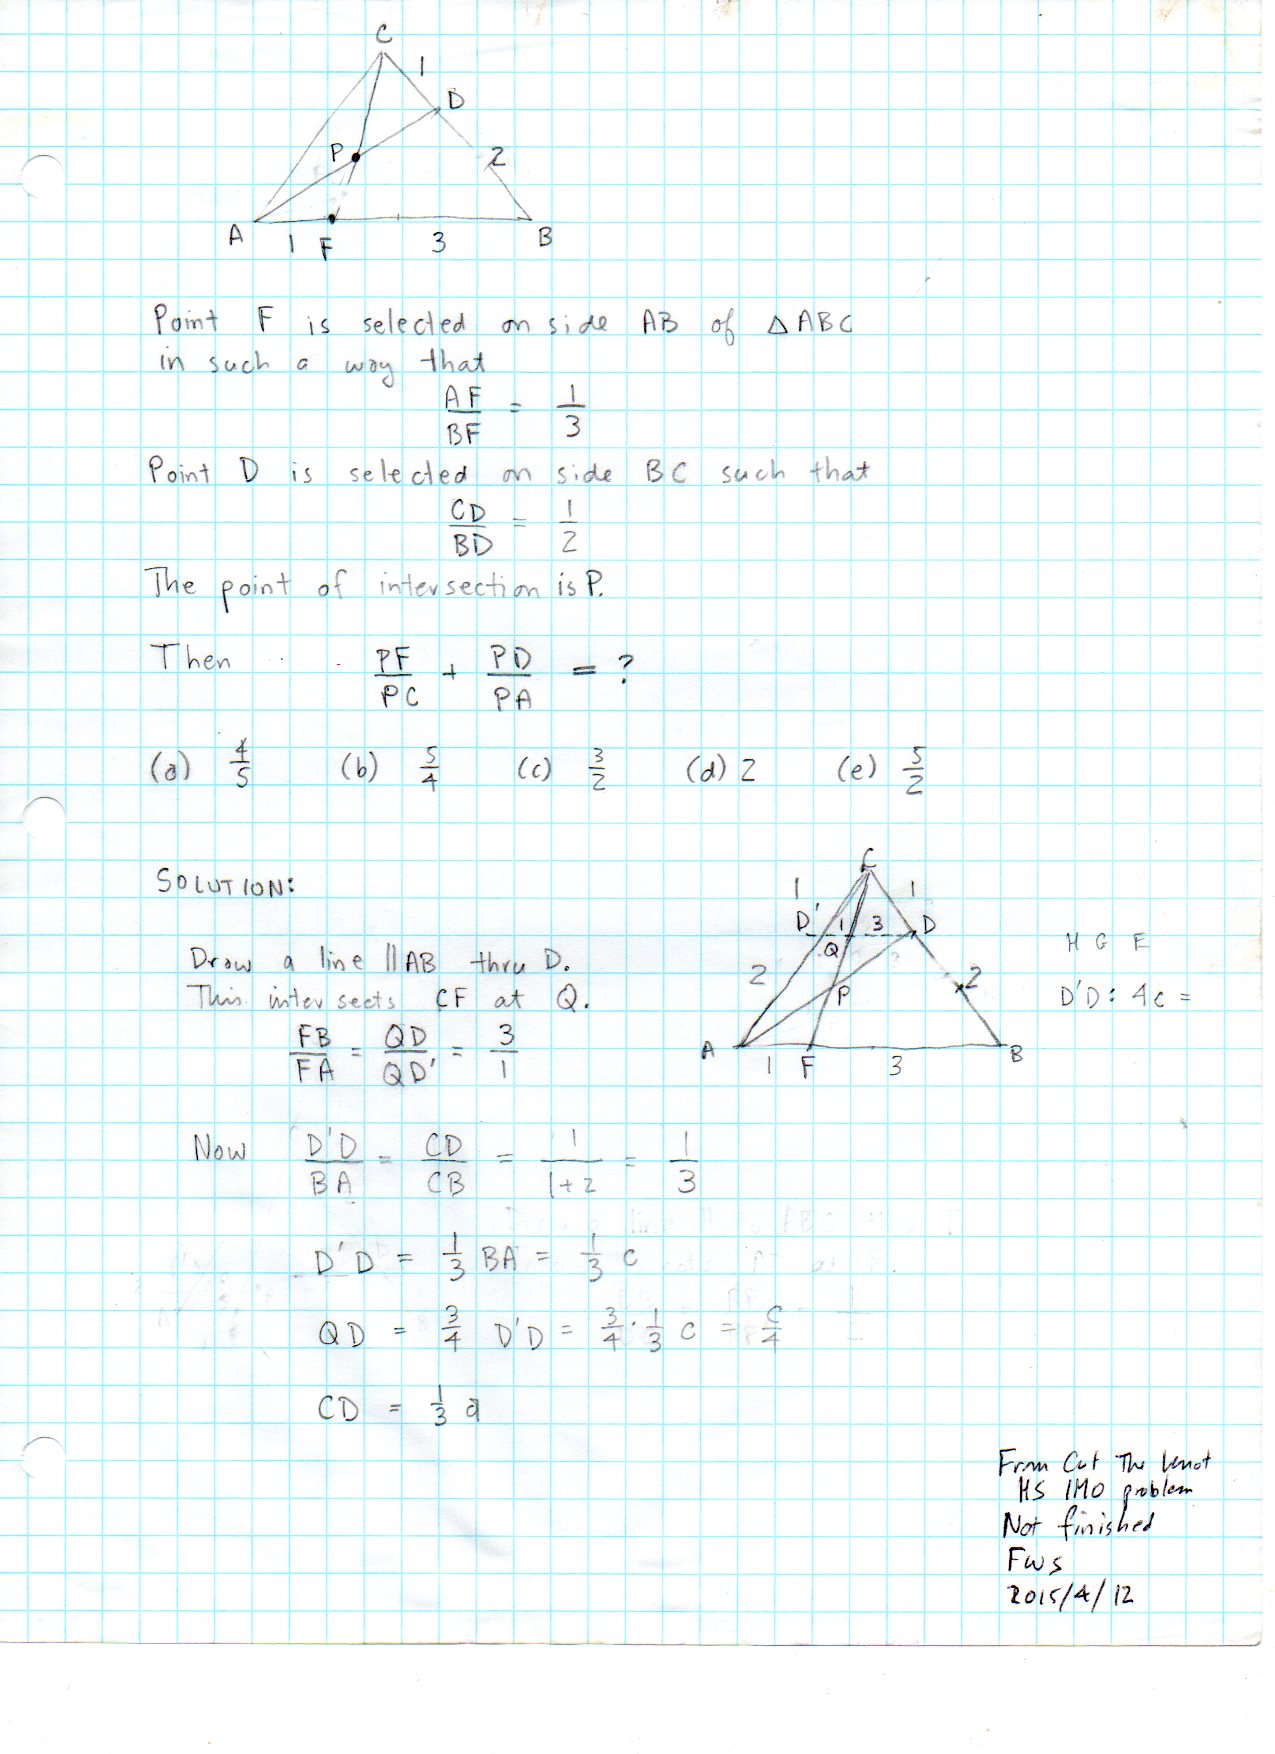 C
1
D
P
2
A 1 F 3 B
Point F is selected on side AB of △ABC
in such a way that
AF/BF = 1/3
Point D is selected on side BC such that
CD/BD = 1/2
The point of intersection is P.
Then PF/PC + PD/PA = ?
(a) 4/5 (b) 5/4 (c) 3/2 (d) 2 (e) 5/2
SOLUTION:
C
1 1
D' 1 3 D
Q
2 2
P
A 1 F 3 B
H G E
D'D: 4c =
Draw a line ∥AB thru D.
This intersects CF at Q.
FB/FA = QD/QD' = 3/1
Now D'D/BA = CD/CB = 1/(1+2) = 1/3
D'D = 1/3 BA = 1/3 c
QD = 3/4 D'D = 3/4 · 1/3 c = c/4
CD = 1/3 a
From Cut The knot
HS IMO problem
Not finished
FWS
2015/4/12